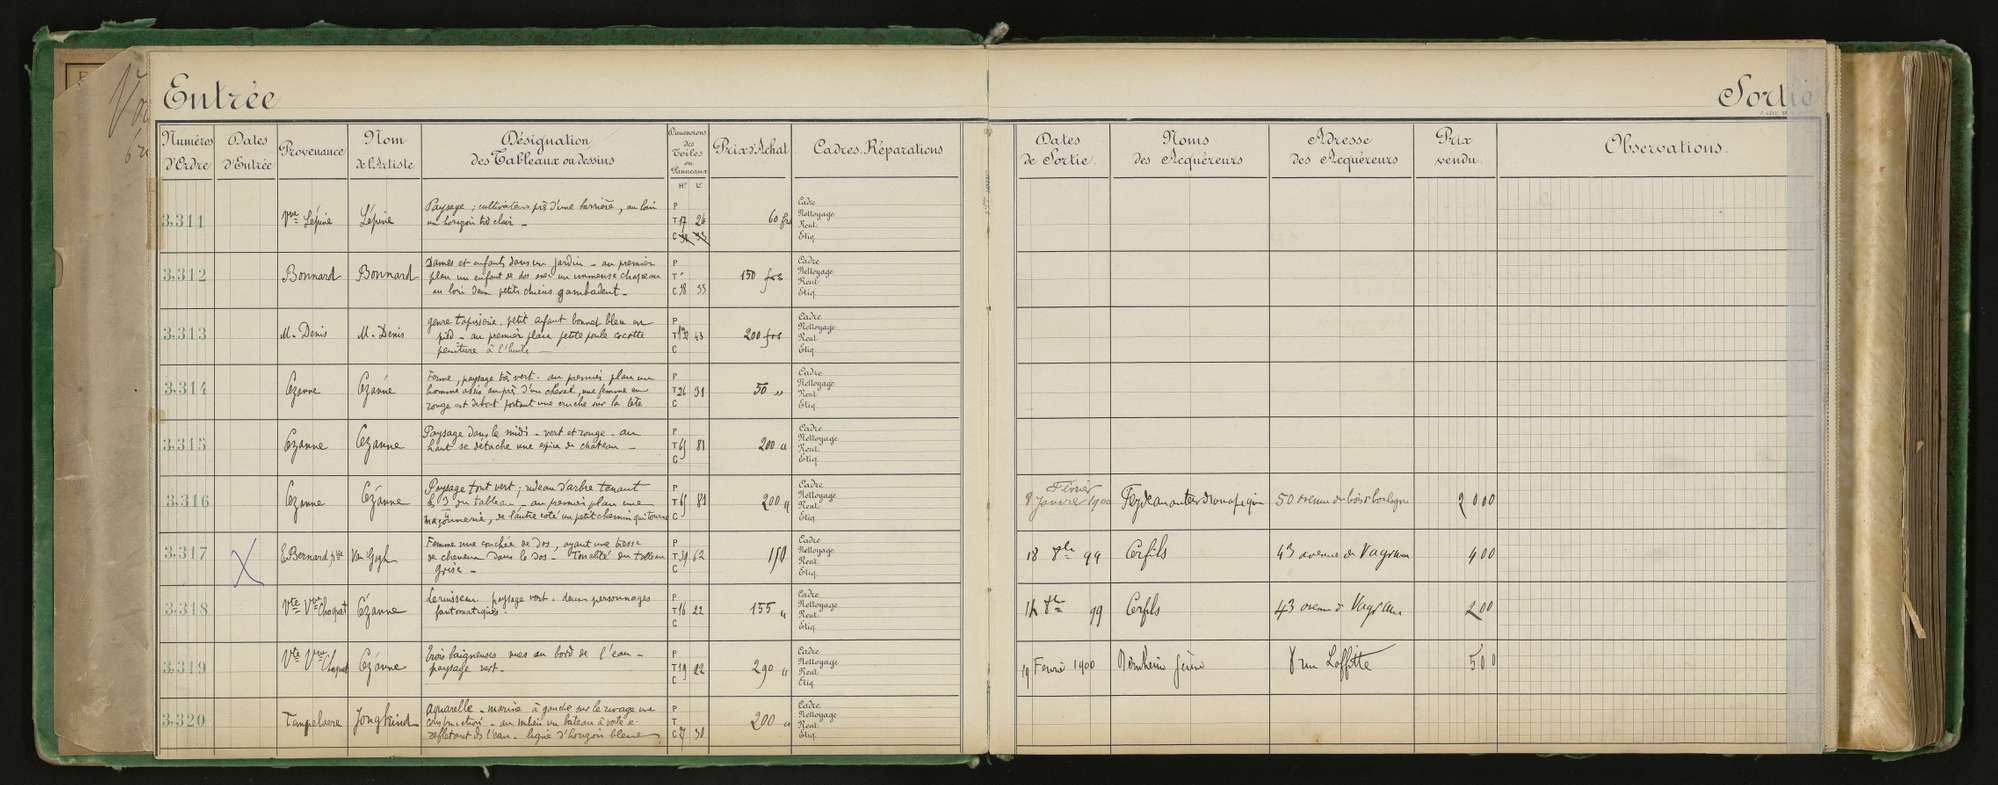 Entrée
Sortie
Numéros d'Ordre
Dates d'Entrée
Provenance
Nom de l'Artiste
Désignation des Tableaux ou dessins
Dimensions des Toiles ou Panneaux
Hr Lr
Prix d'Achat
Cadres. Réparations
Dates de Sortie.
Noms des Acquéreurs
Adresse des Acquéreurs
Prix vendu.
Observations.
3.311 Vve Lépine Lépine
Paysage; cultivateur près d'une barrière, au loin
un horizon très clair _
P
T 17 26
C
60 frs
Cadre
Nettoyage
Rent.
Etiq.
3.312 Bonnard Bonnard
Dames et enfants dans un jardin _ au premier
plan un enfant de dos avec un immense chapeau
au loin deux petits chiens gambadent _
P
T
C 38 33
150 frs
Cadre
Nettoyage
Rent.
Etiq.
3.313 M. Denis M. Denis
genre tapisserie. petit enfant bonnet bleu au
pied _ au premier plan petite poule cocotte
peinture à l'huile _
P
T 43
C
200 frs
Cadre
Nettoyage
Rent.
Etiq.
3.314 Cézanne Cézanne
Ferme, paysage très vert _ au premier plan un
homme assis auprès d'un cheval, une femme en
rouge est debout portant une cruche sur la tête
P
T 26 31
C
50 "
Cadre
Nettoyage
Rent.
Etiq.
3.315 Cézanne Cézanne
Paysage dans le midi _ vert et rouge _ au
haut se détache une épure de château _
P
T 65 81
C
200 "
Cadre
Nettoyage
Rent.
Etiq.
3.316 Cézanne Cézanne
Paysage tout vert; rideau d'arbre tenant
du tableau _ au premier plan une
maçonnerie, de l'autre coté un petit chemin qui tourne
P
T 65 81
C
200 "
Cadre
Nettoyage
Rent.
Etiq.
Février
8 Janvier 1900 Feydeau auteur dramatique 50 avenue du bois boulogne 2000
3.317 E Bernard Van Gogh
Femme nue couchée de dos, ayant une tresse
de cheveux dans le dos _ Tonalité du tableau
grise _
P
T 39 62
C
150
Cadre
Nettoyage
Rent.
Etiq.
18 99 Cerfils 43 avenue de Wagram 400
3.318 Vte Vve Choquat Cézanne
Le ruisseau. paysage vert _ deux personnages
fantomatiques _
P
T 16 22
C
155 "
Cadre
Nettoyage
Rent.
Etiq.
99 Cerfils 43 avenue de Wagram 200
3.319 Vte Vve Choquat Cézanne
trois baigneuses nues au bord de l'eau _
paysage vert _
P
T 19 22
C
290 "
Cadre
Nettoyage
Rent.
Etiq.
19 Fevrier 1900 Bernheim jeune 8 rue Laffitte 500
3.320 Tempelaere Jongkind
Aquarelle _ marine à gauche sur le rivage une
construction _ au milieu un bateau à voile se
reflétant ds l'eau _ ligne d'horizon bleue
P
T
C 27 38
200 "
Cadre
Nettoyage
Rent.
Etiq.